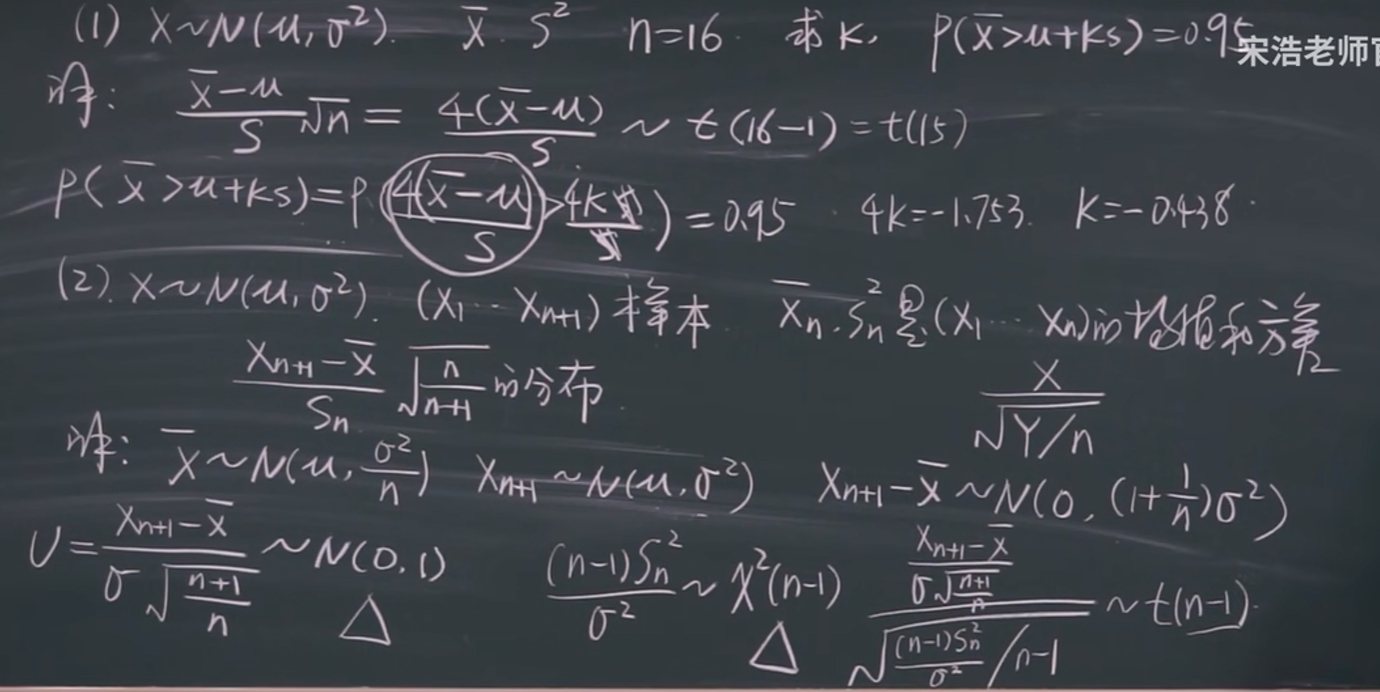 (1) X~N(μ,σ²). X̄. S² n=16. 求K, P(X̄>μ+KS)=0.95
宋浩老师官
解: (X̄-μ)/S √n = 4(X̄-μ)/S ~ t(16-1)=t(15)
P(X̄>μ+KS)=P(4(X̄-μ)/S > 4KS/S)=0.95 4K=-1.753. K=-0.438.
(2). X~N(μ,σ²). (X₁…Xₙ₊₁)样本. X̄ₙ.Sₙ²是(X₁…Xₙ)的均值和方差
(Xₙ₊₁-X̄)/Sₙ √(n/(n+1)) 的分布. X/√(Y/n)
解: X̄~N(μ,σ²/n) Xₙ₊₁~N(μ,σ²) Xₙ₊₁-X̄~N(0,(1+1/n)σ²)
U=(Xₙ₊₁-X̄)/(σ√((n+1)/n)) ~N(0,1) (n-1)Sₙ²/σ² ~ χ²(n-1) ((Xₙ₊₁-X̄)/(σ√((n+1)/n)))/√((n-1)Sₙ²/σ² / n-1) ~t(n-1).
△ △